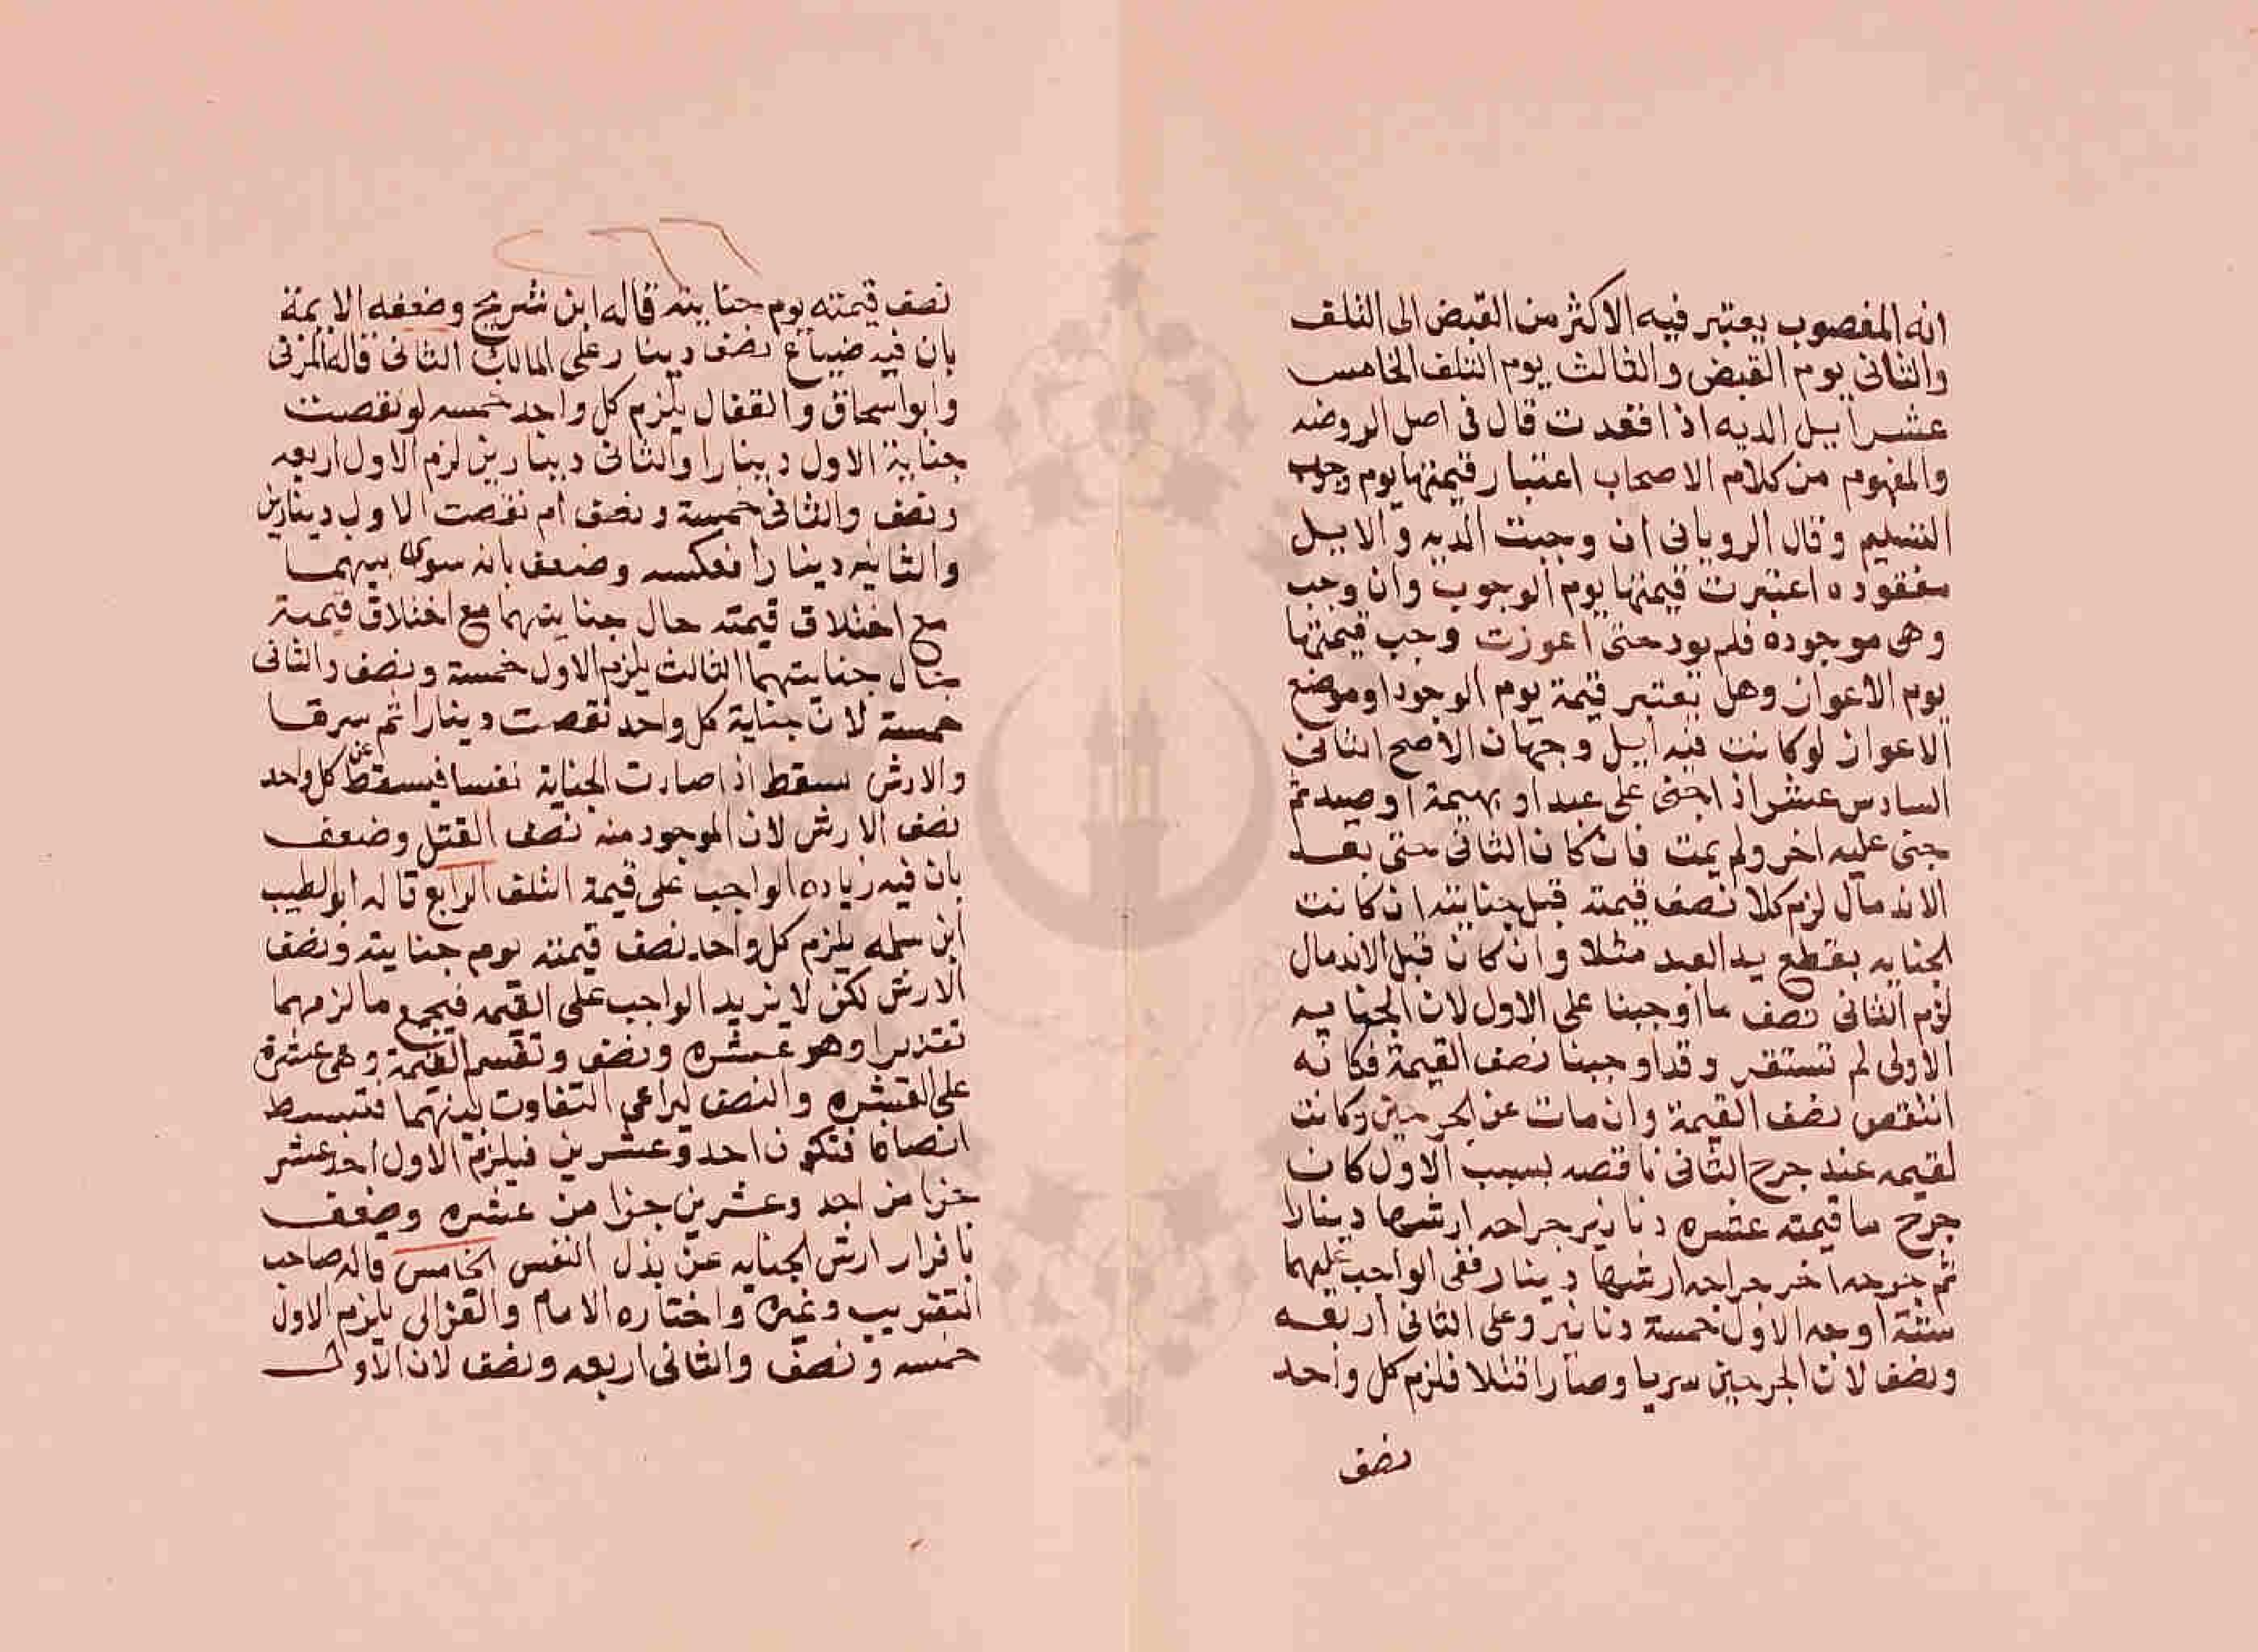 انه المغصوب يعتبر فيه الاكثر من القبض الى التلف
والثاني يوم القبض والثالث يوم التلف الخامس
عشر ابل الديه اذا فقدت قال في اصل الروضه
والمفهوم من كلام الاصحاب اعتبار قيمتها يوم وجوب
التسليم وقال الروياني ان وجبت الديه والابل
مفقوده اعتبرت قيمتها يوم الوجوب وان وجب
وهي موجوده فلم يود حتى اعوزت وجب قيمتها
يوم الاعواز وهل تعتبر قيمة يوم الوجود او موضع
الاعواز لو كانت فيه ابل وجهان الاصح الثاني
السادس عشر اذا جنى على عبد او بهيمة او صيد ثم
جنى عليه اخر ولم يمت فان كان الثاني جنى بعد
الاندمال لزم كلا نصف قيمته قبل جنايته ان كانت
الجنايه بقطع يد العبد مثلا وان كان قبل الاندمال
لزم الثاني نصف ما اوجبنا على الاول لان الجنايه
الاولى لم تستقر وقد اوجبنا نصف القيمة فكانه
انتقص نصف القيمة وان مات عن الجرحين وكانت
لقيمه عند جرح الثاني ناقصه بسبب الاول كان
جرح ما قيمته عشره دنانير جراحه ارشها دينارا
ثم جرحه اخر جراحه ارشها دينار ففي الواجب عليهما
ستة اوجه الاول خمسة دنانير وعلى الثاني اربعه
ونصف لان الجرحين سريا وصارا قتلا فلزم كل واحد
نصف
نصف قيمته يوم جنايته قاله ابن شريح وضعفه الايمة
بان فيه ضياع نصف دينار على المالك الثاني قاله المزني
وابو اسحاق والقفال يلزم كل واحد خمسه لو نقصت
جناية الاول دينارا والثاني دينارين لزم الاول اربعه
ونصف والثاني خمسة ونصف ام نقصت الاول دينارين
والثانيه دينارا فعكسه وضعف بانه سوى بينهما
مع اختلاف قيمته حال جنايتهما مع اختلاف قيمته
حال جنايتهما الثالث يلزم الاول خمسة ونصف والثاني
خمسة لان جناية كل واحد نقصت دينارا ثم سرقا
والارش يسقط اذا صارت الجناية نفسا فيسقط عن كل واحد
نصف الارش لان الموجود منه نصف القتل وضعف
بان فيه زياده الواجب على قيمة التلف الرابع قاله ابو الطيب
ابن سلمه يلزم كل واحد نصف قيمته يوم جنايته ونصف
الارش لكن لا يزيد الواجب على القيمه فيجمع ما لزمهما
تقديرا وهو عشره ونصف وتقسم القيمة وهي عشرة
على العشره والنصف ليراعي التفاوت بينهما فتبسط
انصافا فتكون احد وعشرين فيلزم الاول احد عشر
جزا من احد وعشرين جزا من عشره وضعف
بافراد ارش الجنايه عن بدل النفس الخامس قاله صاحب
التقريب وغيره واختاره الامام والغزالي يلزم الاول
خمسه ونصف والثاني اربعه ونصف لان الاول